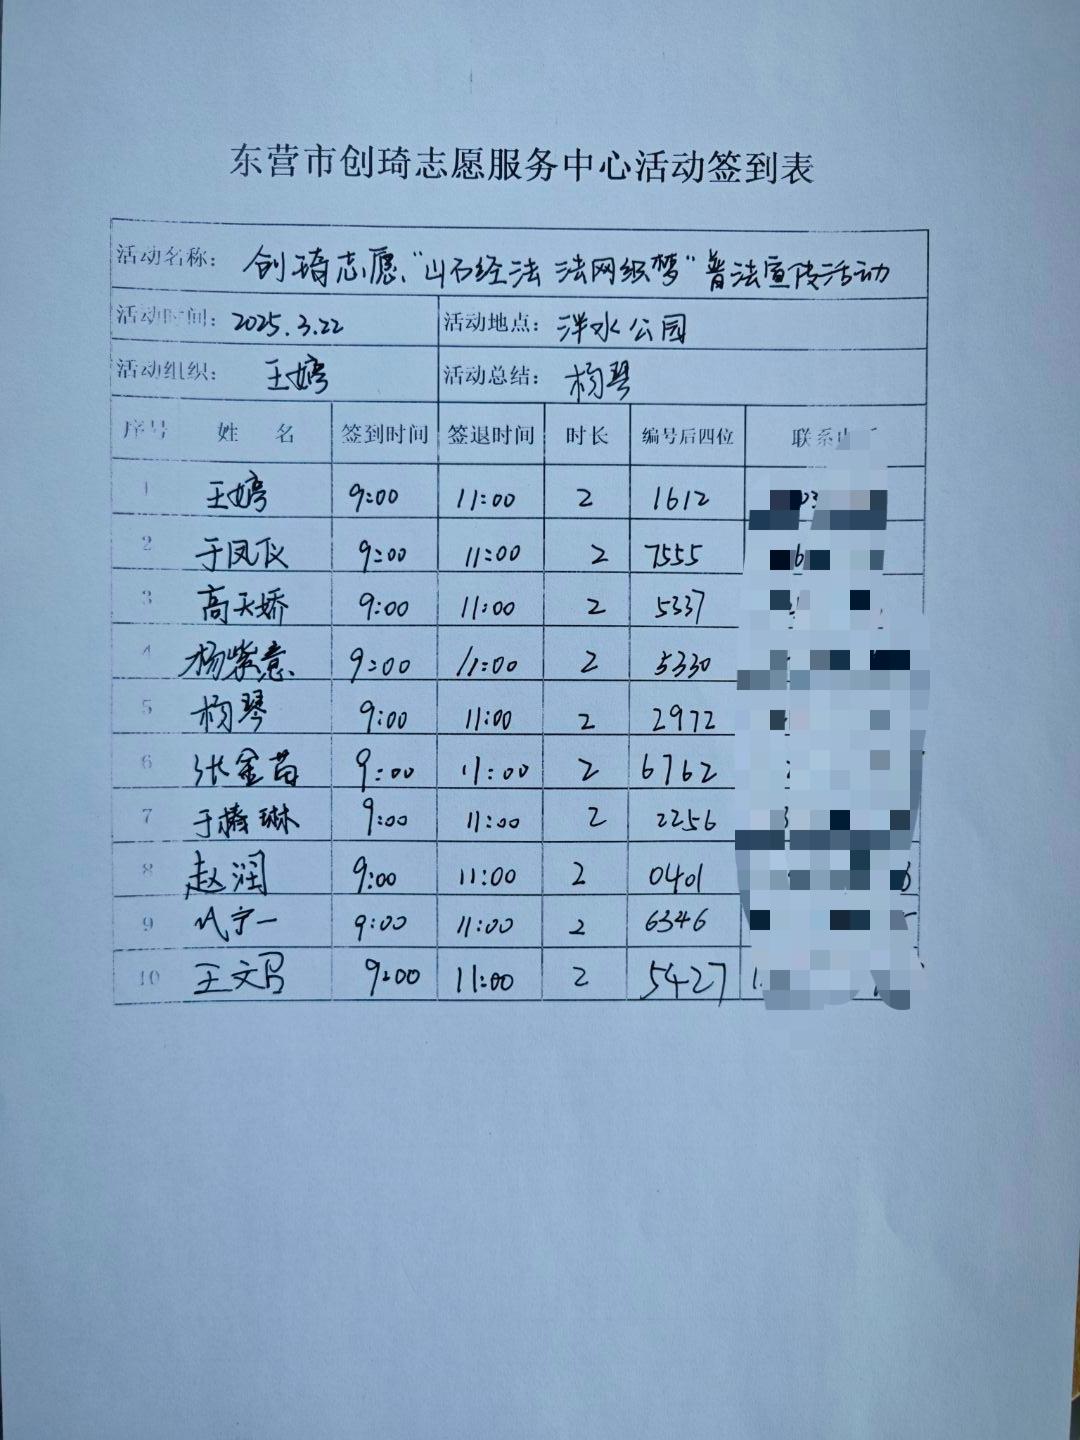 东营市创琦志愿服务中心活动签到表
活动名称： 创琦志愿“山石经法 法网织梦”普法宣传活动
活动时间： 2025.3.22 活动地点： 洋水公园
活动组织： 王婷 活动总结： 杨琴
序号 姓 名 签到时间 签退时间 时长 编号后四位 联系
1 王婷 9:00 11:00 2 1612
2 于凤仪 9:00 11:00 2 7555
3 高天娇 9:00 11:00 2 5337
4 杨紫意 9:00 11:00 2 5330
5 杨琴 9:00 11:00 2 2972
6 张金苗 9:00 11:00 2 6762
7 于 琳 9:00 11:00 2 2256
8 赵润 9:00 11:00 2 0401
9 宁一 9:00 11:00 2 6346
10 王文 9:00 11:00 2 5427